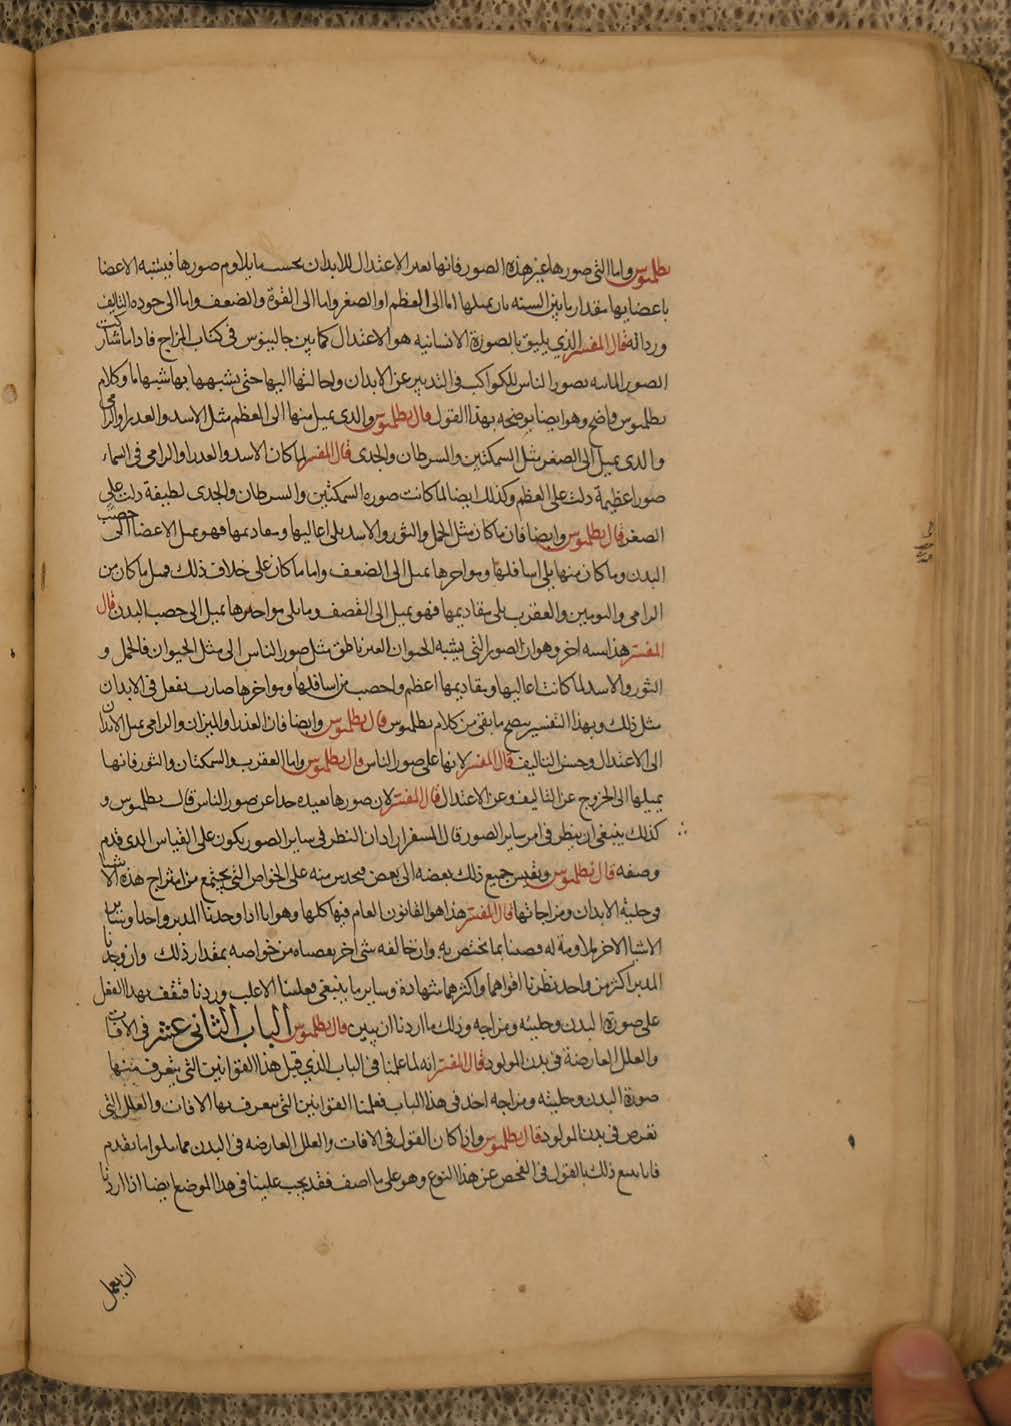 بطلميوس واما التى صورها غير هذه الصور فانها تغير الاعتدال للابدان بحسب ما يلاوم صورها فيشبه الاعضا
باعضايها مقدار ما بين السنه بان يميلها اما الى العظم او الصغر واما الى القوة والضعف واما الى جوده التاليف
ورداته قال المفسر الذي يليق بالصورة الانسانيه هو الاعتدال كما بين جالينوس فى كتاب المزاج فاذا ما شاركت
الصور بصور الناس للكواكب فى التدبير عن الابدان واحالتها اليها حتى يشبهها بها شبها ما وكلام
بطلميوس واضح وهو ايضا يوضحه بهذا القول قال بطلميوس والذى يميل منها الى العظم مثل الاسد والعذرا والرامى
والذى يميل الى الصغر مثل السمكتين والسرطان والجدى قال المفسر لما كان الاسد والعدرا والرامى فى السماء
صورا عظيمة دلت على العظم وكذلك ايضا لما كانت صوره السمكتين والسرطان والجدى لطيفة دلت على
الصغر قال بطلميوس وايضا فان ما كان مثل الحمل والثور والاسد يلى اعاليها ومقاديمها فهو يميل الاعضا الى خصب
البدن وما كان منها يلى اسافلها ومواخرها يميل الى الضعف واما ما كان على خلاف ذلك مثل ما كان من
الرامى والتومين والعقرب يلى مقاديمها فهو يميل الى القصف وما يلى مواخرها يميل الى خصب البدن قال
المفسر هذا اخر وهو ان الصور التى يشبه الحيوان الغير ناطق مثل صور الناس الى مثل الحيوان فالحمل و
الثور والاسد لما كانت اعاليها ومقاديمها اعظم واخصب من اسافلها ومواخرها صارت يفعل فى الابدان
مثل ذلك وبهذا التفسير يتضح ما بقى من كلام بطلميوس قال بطلميوس وايضا فان العذرا والميزان والرامى يميل الابدان
الى الاعتدال وحسن التاليف قال المفسر لانها على صور الناس قال بطلميوس واما العقرب والسمكتان والثور فانها
يميلها الى الخروج عن التاليف وعن الاعتدال قال المفسر لان صورها بعيده جدا عن صور الناس قال بطلميوس و
كذلك ينبغى ان ينظر فى امر ساير الصور قال المفسر اراد ان النظر فى ساير الصور يكون على القياس الذى قدم
وصفه قال بطلميوس ونقيس جميع ذلك بعضه الى بعض فيحدس منه على الخواص التى يجتمع من امتزاج هذه الاشيا
فى حلية الابدان ومزاجاتها قال المفسر هذا هو القانون العام فيها كلها وهو انا اذا وجدنا المدبر واحدا وساير
الاشيا الاخر ملاومة له قصنا بما يختص به وان خالفه شى اخر نقصناه من خواصه بمقدار ذلك وان وجدنا
المدبر اكثر من واحد نظرنا اقواهما واكثرهما شهادة وساير ما ينبغى فعلينا الاغلب وردنا فنقف بهذا الفعل
على صورة البدن وحليته ومزاجه وذلك ما اردنا ان نبين قال بطلميوس الباب الثانى عشر فى الافات
والعلل العارضة فى بدن المولود قال المفسر انه لما علمنا فى الباب الذي قبل هذا القوانين التى يتعرف منها
صورة البدن وحليته ومزاجه اخذ فى هذا الباب فعلمنا القوانين التى يتعرف بها الافات والعلل التى
تعرض فى بدن المولود قال بطلميوس واذ كان القول فى الافات والعلل العارضه فى البدن مما يتلوا ما تقدم
فانا نتبع ذلك بالقول فى الفحص عن هذا النوع وهو على ما اصف فقد يجب علينا فى هذا الموضع ايضا اذا اردنا
ان نعمل